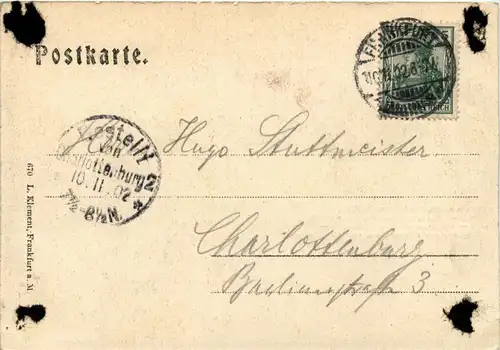 Postkarte.
FRANKFURT
Bestellt
von
Charlottenburg 2
10.11.02
7½-8½N.
Herrn Hugo Stuttmeister
Charlottenburg
Berlinerstraße 3
670 L. Klement, Frankfurt a. M